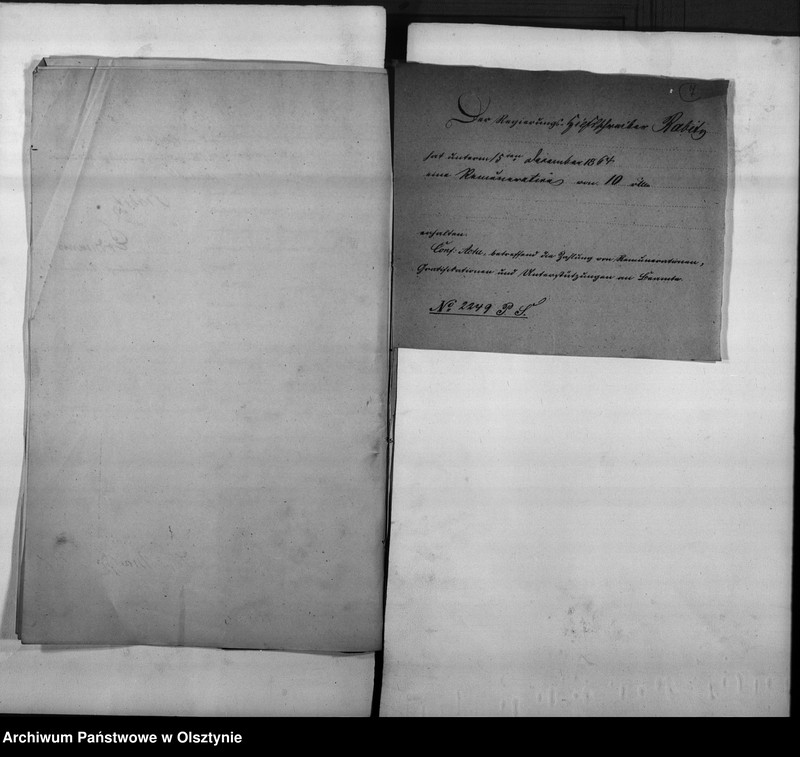 7
Der Regierungs-Hilfsschreiber Rabitz
hat unterm 15ten December 1864
eine Remuneration von 10 rtlr
erhalten.
Conf. Acta, betreffend die Zahlung von Remunerationen,
Gratifikationen und Unterstützungen an Beamte.
No 2249 P. S.
Archiwum Państwowe w Olsztynie